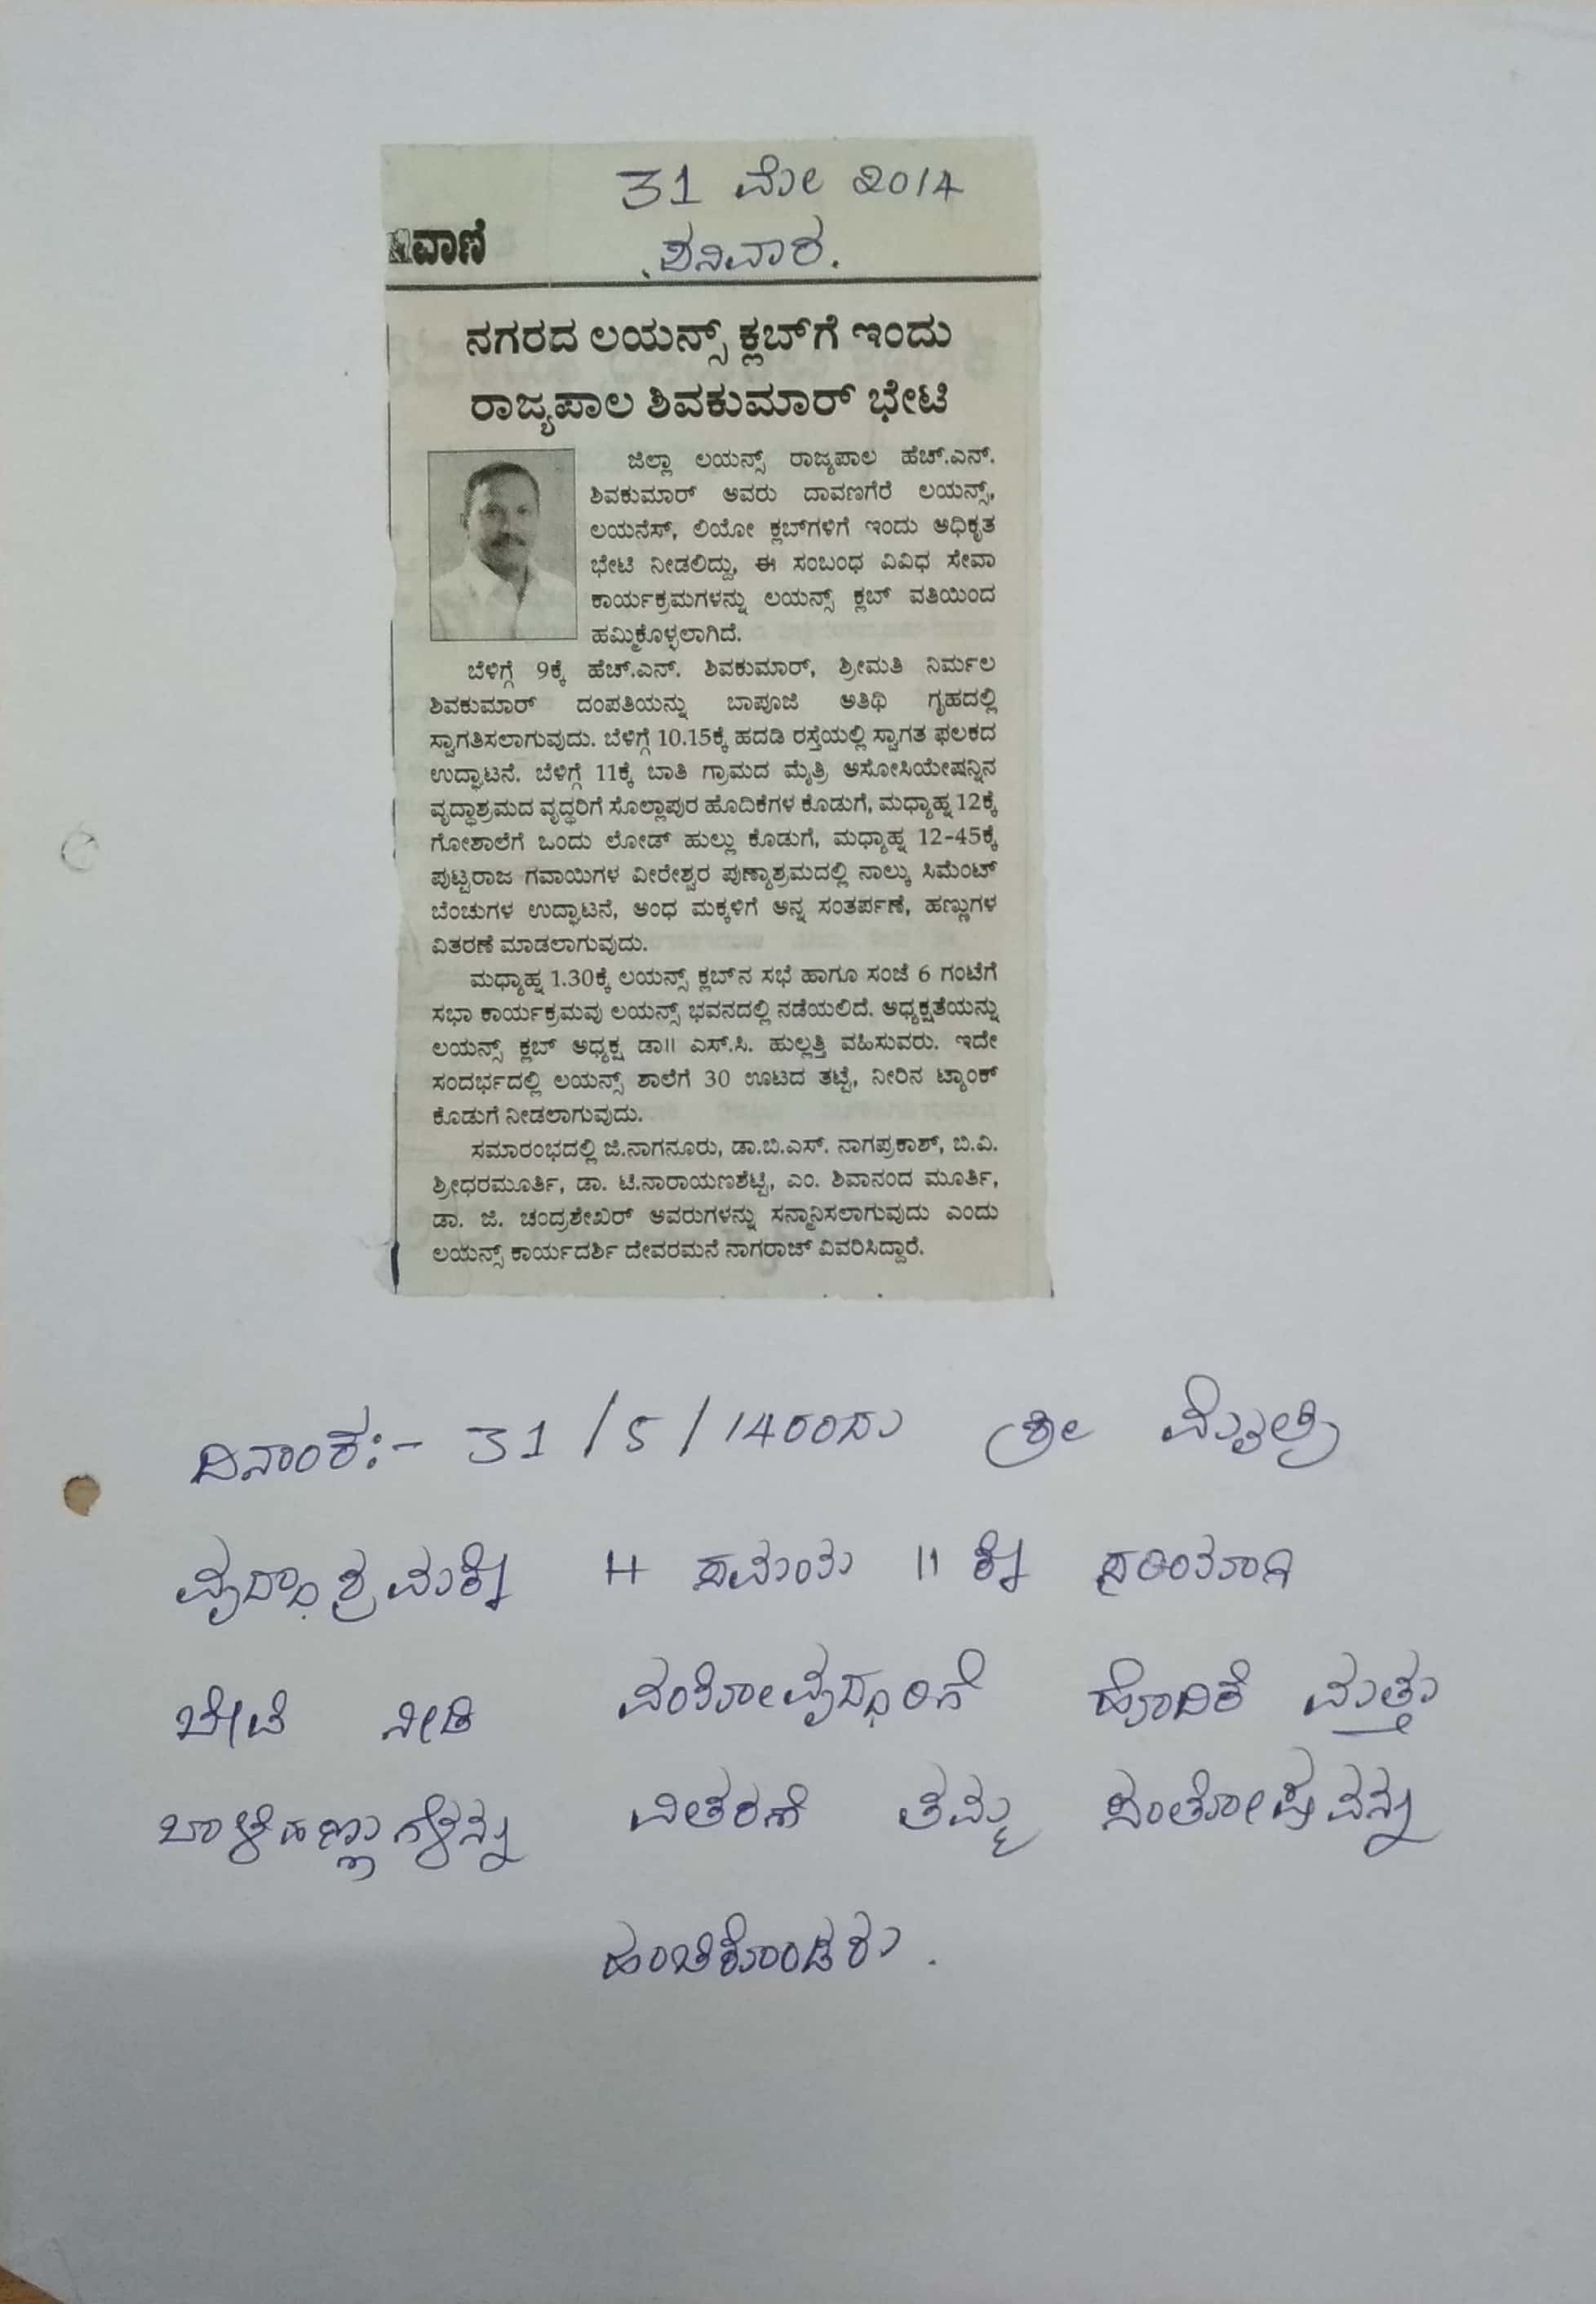 31 ಮೇ 2014
ವಾಣಿ
ಶನಿವಾರ.
ನಗರದ ಲಯನ್ಸ್ ಕ್ಲಬ್‌ಗೆ ಇಂದು
ರಾಜ್ಯಪಾಲ ಶಿವಕುಮಾರ್ ಭೇಟಿ
ಜಿಲ್ಲಾ ಲಯನ್ಸ್ ರಾಜ್ಯಪಾಲ ಹೆಚ್.ಎನ್.
ಶಿವಕುಮಾರ್ ಅವರು ದಾವಣಗೆರೆ ಲಯನ್ಸ್,
ಲಯನೆಸ್, ಲಿಯೋ ಕ್ಲಬ್‌ಗಳಿಗೆ ಇಂದು ಅಧಿಕೃತ
ಭೇಟಿ ನೀಡಲಿದ್ದು, ಈ ಸಂಬಂಧ ವಿವಿಧ ಸೇವಾ
ಕಾರ್ಯಕ್ರಮಗಳನ್ನು ಲಯನ್ಸ್ ಕ್ಲಬ್ ವತಿಯಿಂದ
ಹಮ್ಮಿಕೊಳ್ಳಲಾಗಿದೆ.
ಬೆಳಿಗ್ಗೆ 9ಕ್ಕೆ ಹೆಚ್.ಎನ್. ಶಿವಕುಮಾರ್, ಶ್ರೀಮತಿ ನಿರ್ಮಲ
ಶಿವಕುಮಾರ್ ದಂಪತಿಯನ್ನು ಬಾಪೂಜಿ ಅತಿಥಿ ಗೃಹದಲ್ಲಿ
ಸ್ವಾಗತಿಸಲಾಗುವುದು. ಬೆಳಿಗ್ಗೆ 10.15ಕ್ಕೆ ಹದಡಿ ರಸ್ತೆಯಲ್ಲಿ ಸ್ವಾಗತ ಫಲಕದ
ಉದ್ಘಾಟನೆ. ಬೆಳಿಗ್ಗೆ 11ಕ್ಕೆ ಬಾತಿ ಗ್ರಾಮದ ಮೈತ್ರಿ ಅಸೋಸಿಯೇಷನ್ನಿನ
ವೃದ್ಧಾಶ್ರಮದ ವೃದ್ಧರಿಗೆ ಸೊಲ್ಲಾಪುರ ಹೊದಿಕೆಗಳ ಕೊಡುಗೆ, ಮಧ್ಯಾಹ್ನ 12ಕ್ಕೆ
ಗೋಶಾಲೆಗೆ ಒಂದು ಲೋಡ್ ಹುಲ್ಲು ಕೊಡುಗೆ, ಮಧ್ಯಾಹ್ನ 12-45ಕ್ಕೆ
ಪುಟ್ಟರಾಜ ಗವಾಯಿಗಳ ವೀರೇಶ್ವರ ಪುಣ್ಯಾಶ್ರಮದಲ್ಲಿ ನಾಲ್ಕು ಸಿಮೆಂಟ್
ಬೆಂಚುಗಳ ಉದ್ಘಾಟನೆ, ಅಂಧ ಮಕ್ಕಳಿಗೆ ಅನ್ನ ಸಂತರ್ಪಣೆ, ಹಣ್ಣುಗಳ
ವಿತರಣೆ ಮಾಡಲಾಗುವುದು.
ಮಧ್ಯಾಹ್ನ 1.30ಕ್ಕೆ ಲಯನ್ಸ್ ಕ್ಲಬ್‌ನ ಸಭೆ ಹಾಗೂ ಸಂಜೆ 6 ಗಂಟೆಗೆ
ಸಭಾ ಕಾರ್ಯಕ್ರಮವು ಲಯನ್ಸ್ ಭವನದಲ್ಲಿ ನಡೆಯಲಿದೆ. ಅಧ್ಯಕ್ಷತೆಯನ್ನು
ಲಯನ್ಸ್ ಕ್ಲಬ್ ಅಧ್ಯಕ್ಷ ಡಾ॥ ಎಸ್.ಸಿ. ಹುಲ್ಲತ್ತಿ ವಹಿಸುವರು. ಇದೇ
ಸಂದರ್ಭದಲ್ಲಿ ಲಯನ್ಸ್ ಶಾಲೆಗೆ 30 ಊಟದ ತಟ್ಟೆ, ನೀರಿನ ಟ್ಯಾಂಕ್
ಕೊಡುಗೆ ನೀಡಲಾಗುವುದು.
ಸಮಾರಂಭದಲ್ಲಿ ಜಿ.ನಾಗನೂರು, ಡಾ.ಬಿ.ಎಸ್. ನಾಗಪ್ರಕಾಶ್, ಬಿ.ವಿ.
ಶ್ರೀಧರಮೂರ್ತಿ, ಡಾ. ಟಿ.ನಾರಾಯಣಶೆಟ್ಟಿ, ಎಂ. ಶಿವಾನಂದ ಮೂರ್ತಿ,
ಡಾ. ಜಿ. ಚಂದ್ರಶೇಖರ್ ಅವರುಗಳನ್ನು ಸನ್ಮಾನಿಸಲಾಗುವುದು ಎಂದು
ಲಯನ್ಸ್ ಕಾರ್ಯದರ್ಶಿ ದೇವರಮನೆ ನಾಗರಾಜ್ ವಿವರಿಸಿದ್ದಾರೆ.
ದಿನಾಂಕ:- 31/5/14ರಂದು ಶ್ರೀ ಮೈತ್ರಿ
ವೃದ್ಧಾಶ್ರಮಕ್ಕೆ 11 ಕ್ಕೆ
ಬೇಟಿ ನೀಡಿ ವಯೋವೃದ್ಧರಿಗೆ ಹೊದಿಕೆ ಮತ್ತು
ಬಾಳೆಹಣ್ಣುಗಳನ್ನು ವಿತರಣೆ ತಮ್ಮ ಸಂತೋಷವನ್ನು
ಹಂಚಿಕೊಂಡರು.